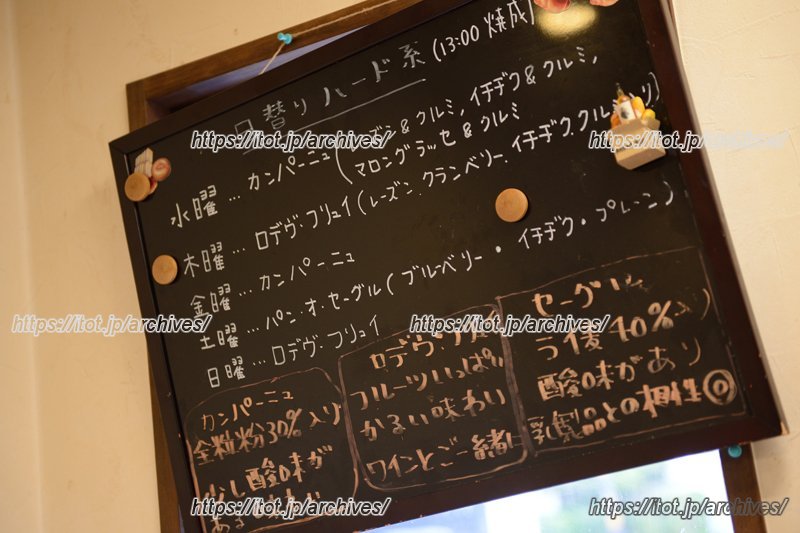 日替りハード系 (13:00 焼成)
水曜 … カンパーニュ (レーズン & クルミ, イチヂク & クルミ,
マロングラッセ & クルミ
木曜 … ロデヴ・フリュイ (レーズン, クランベリー, イチヂク, クルミ入り)
金曜 … カンパーニュ
土曜 … パン・オ・セーグル (ブルーベリー・イチヂク・プレーン)
日曜 … ロデヴ・フリュイ
カンパーニュ
全粒粉30%入り
少し酸味が
ロデヴ・フリュイ
フルーツいっぱい
かるい味わい
ワインとご一緒に
セーグル
ライ麦40%入り
酸味があり
乳製品との相性◎
https://itot.jp/archives/
https://itot.jp/archives/
https://itot.jp/archives/
https://itot.jp/archives/
https://itot.jp/archives/
https://itot.jp/archives/